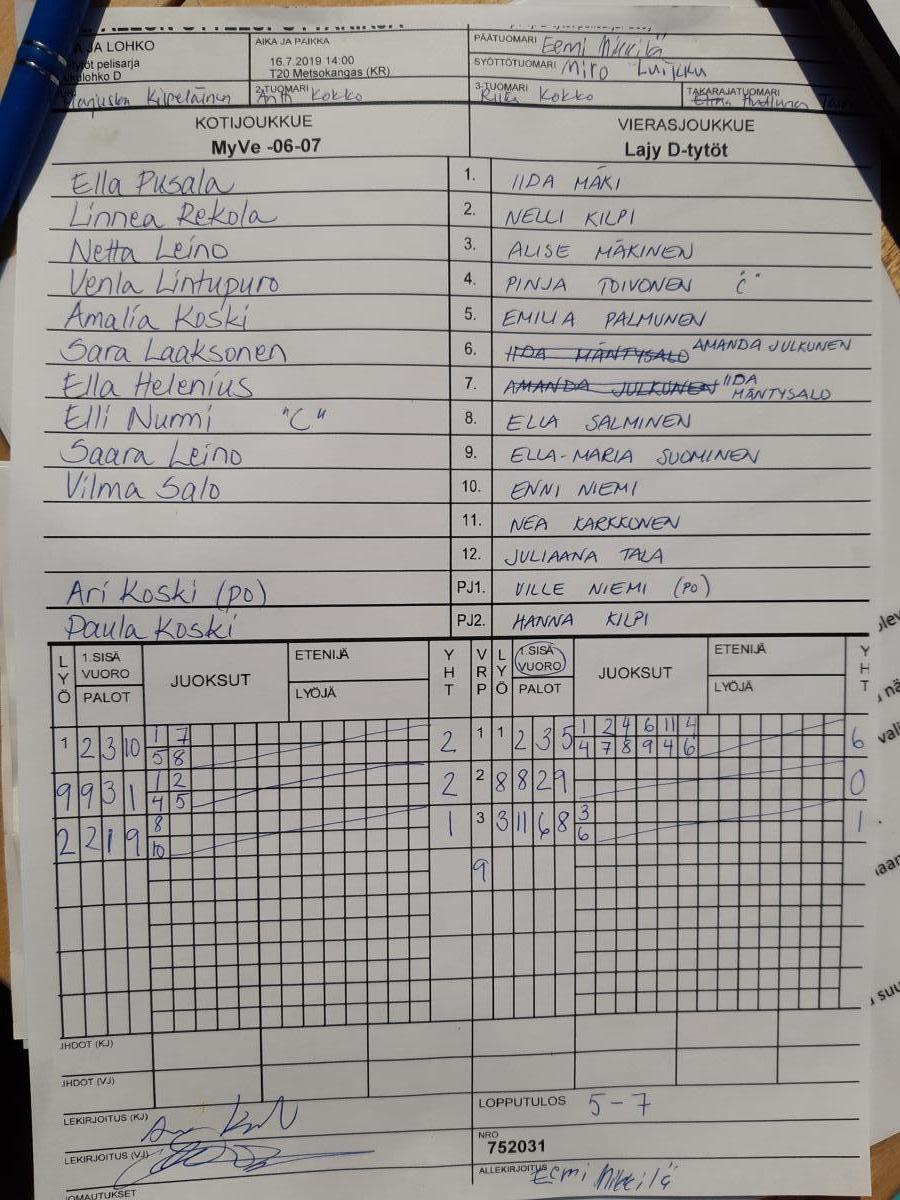 A JA LOHKO
AIKA JA PAIKKA
PÄÄTUOMARI Eemi Mikkilä
tytöt pelisarja
16.7.2019 14:00
SYÖTTÖTUOMARI Miro Luikku
lohko D
T20 Metsokangas (KR)
Marjuska Kilpeläinen
2-TUOMARI Antti Kokko
3-TUOMARI Riika Kokko
TAKARAJATUOMARI
KOTIJOUKKUE
VIERASJOUKKUE
MyVe -06-07
Lajy D-tytöt
Ella Pusala 1. IIDA MÄKI
Linnea Rekola 2. NELLI KILPI
Netta Leino 3. ALISE MÄKINEN
Venla Lintupuro 4. PINJA TOIVONEN "C"
Amalia Koski 5. EMILIA PALMUNEN
Sara Laaksonen 6. IIDA MÄNTYSALO AMANDA JULKUNEN
Ella Helenius 7. AMANDA JULKUNEN IIDA MÄNTYSALO
Elli Nurmi "C" 8. ELLA SALMINEN
Saara Leino 9. ELLA-MARIA SUOMINEN
Vilma Salo 10. ENNI NIEMI
11. NEA KARKKONEN
12. JULIAANA TALA
Ari Koski (po) PJ1. VILLE NIEMI (PO)
Paula Koski PJ2. HANNA KILPI
LYÖ 1.SISÄ VUORO PALOT JUOKSUT ETENIJÄ LYÖJÄ YHT VRP LYÖ 1.SISÄ VUORO PALOT JUOKSUT ETENIJÄ LYÖJÄ YHT
1 2 3 10 1 7 2 1 1 2 3 5 1 2 4 6 11 4 6
5 8 4 7 8 9 4 6
9 9 3 1 1 2 2 2 8 8 2 9 0
4 5
2 2 1 9 8 1 3 3 11 6 8 3 1
10 6
9
JHDOT (KJ)
JHDOT (VJ)
LEKIRJOITUS (KJ)
LOPPUTULOS 5-7
LEKIRJOITUS (VJ)
NRO
752031
ALLEKIRJOITUS Eemi Mikkilä
JOMAUTUKSET